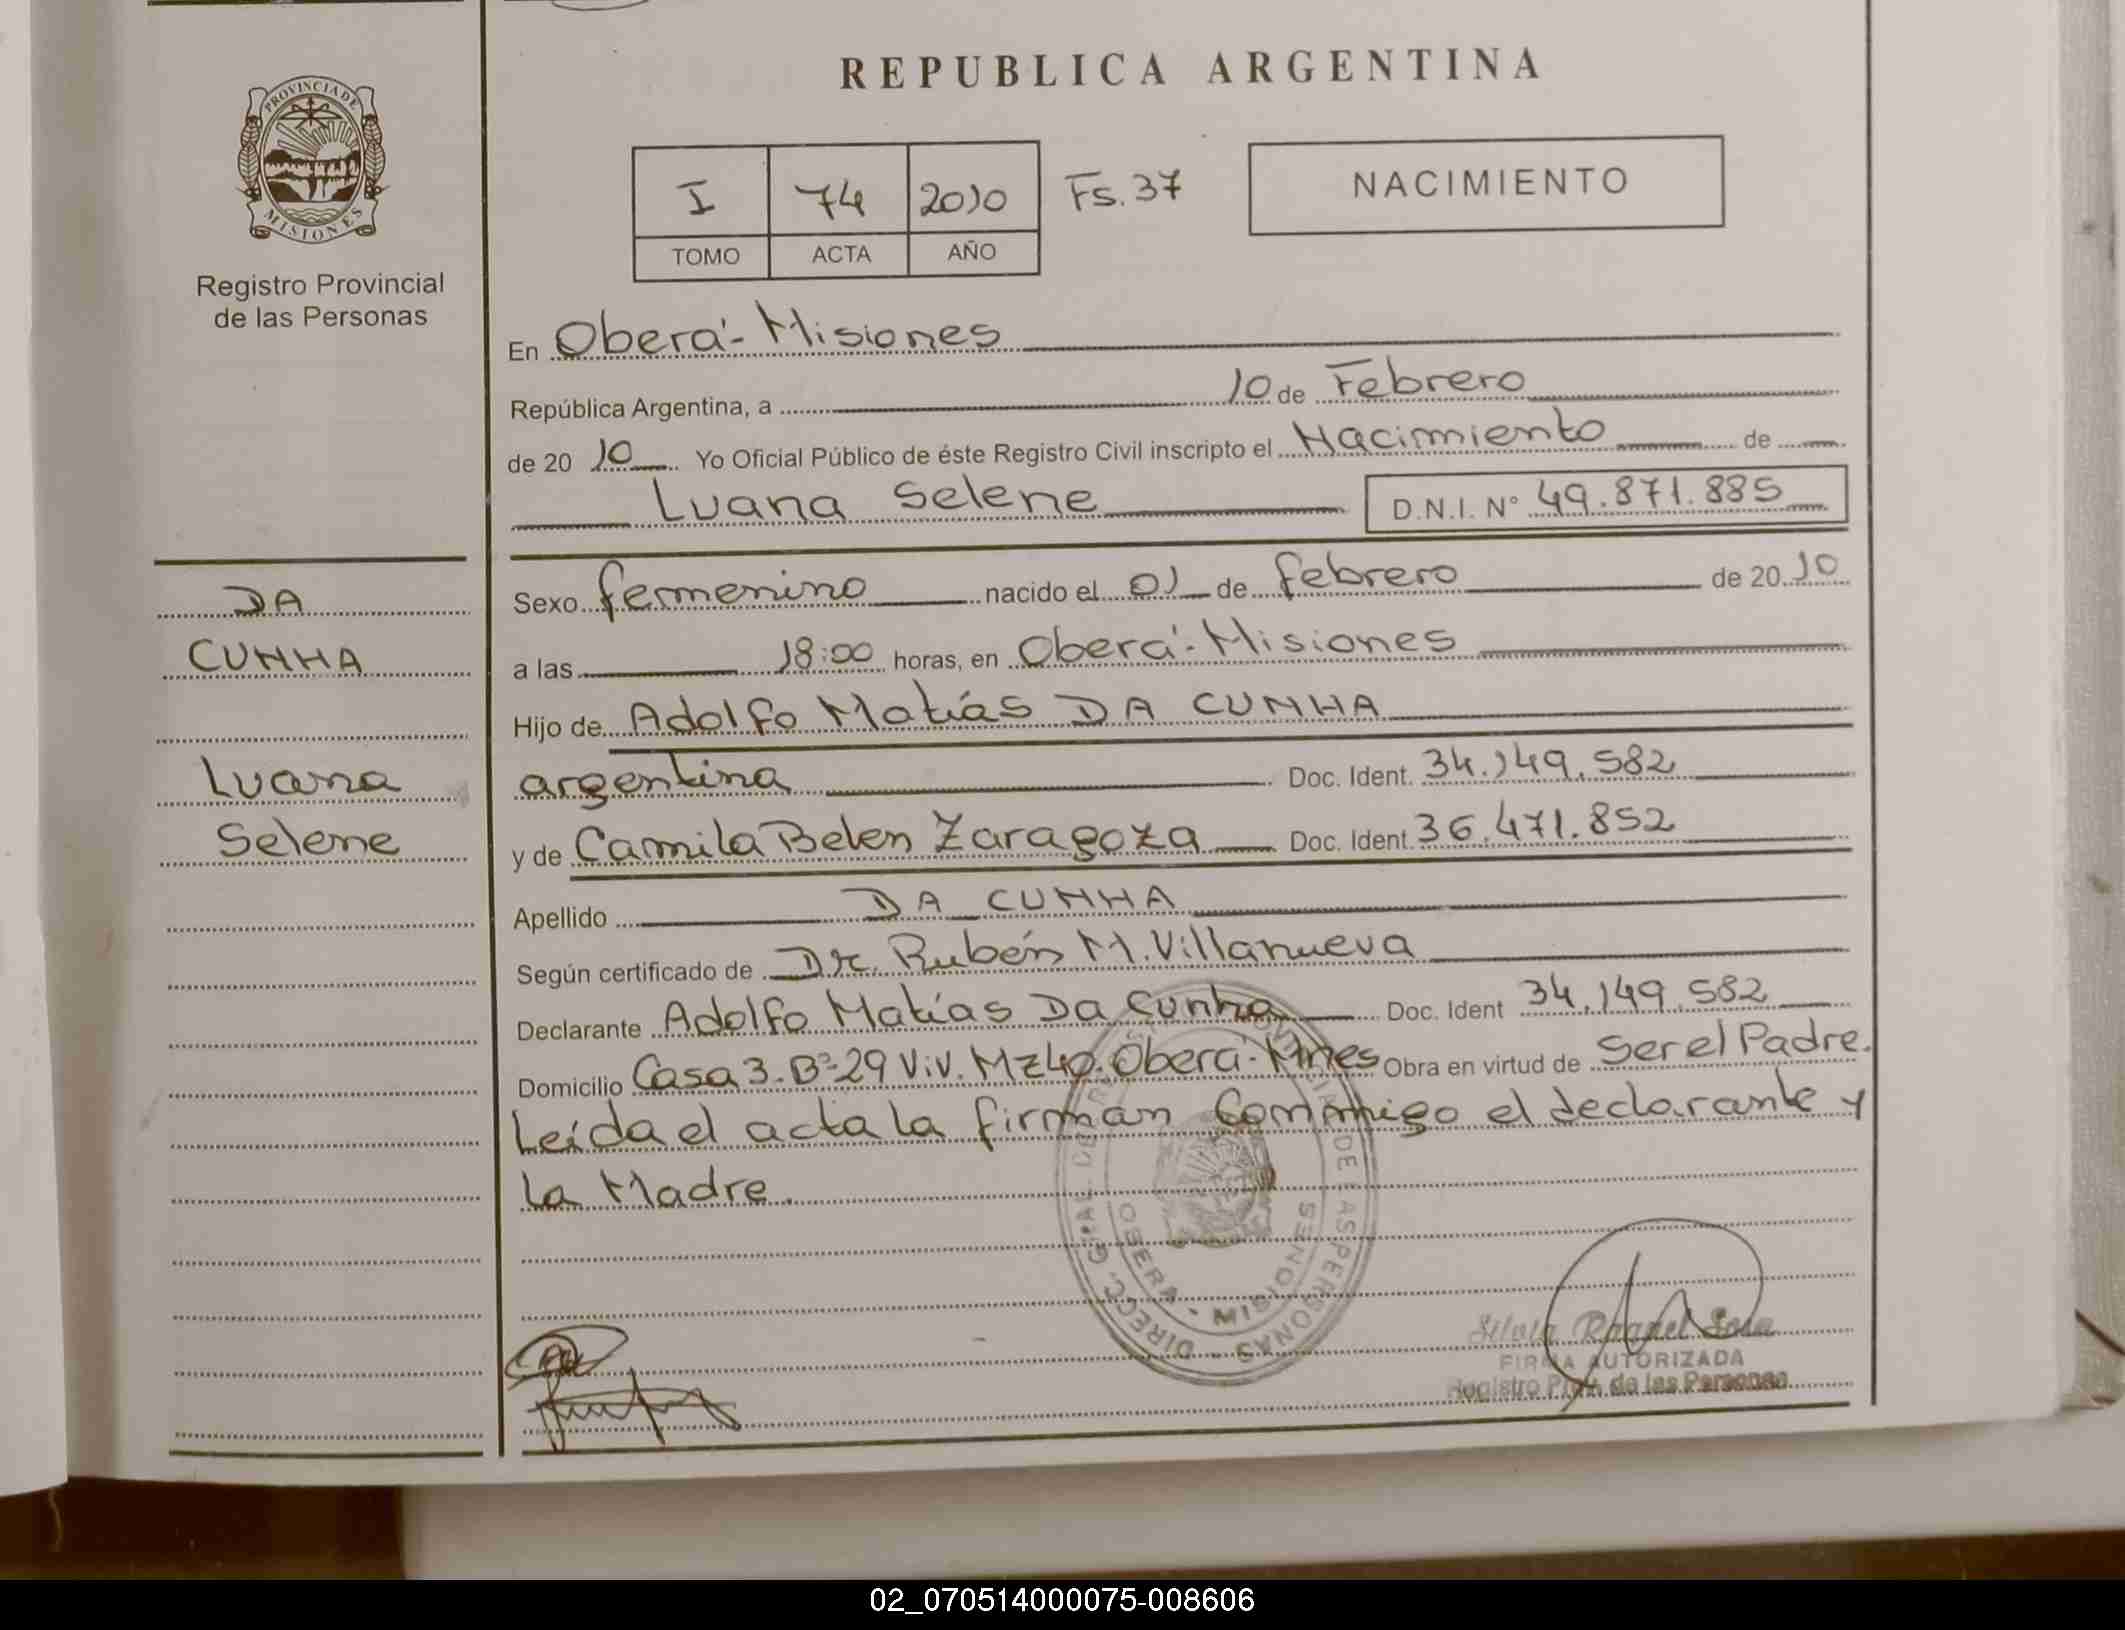 REPUBLICA ARGENTINA
PROVINCIA DE
MISIONES
Registro Provincial
de las Personas
I 74 2010 Fs. 37
TOMO ACTA AÑO
NACIMIENTO
En Oberá - Misiones
República Argentina, a 10 de Febrero
de 20 10 Yo Oficial Público de éste Registro Civil inscripto el Nacimiento de
Luana Selene D.N.I. N° 49.871.885
DA
CUNHA
Luana
Selene
Sexo femenino nacido el 01 de febrero de 20 10
a las 18:00 horas, en Oberá - Misiones
Hijo de Adolfo Matías DA CUNHA
argentina Doc. Ident. 34.149.582
y de Camila Belen Zaragoza Doc. Ident. 36.471.852
Apellido DA CUNHA
Según certificado de Dr. Rubén M. Villanueva
Declarante Adolfo Matías Da Cunha Doc. Ident 34.149.582
Domicilio Casa 3. B°-29 Viv. Mz40. Oberá - Mnes Obra en virtud de Ser el Padre.
Leída el acta la firman Conmigo el declarante y
la Madre.
OBERA - MISIONES
Silvia Raquel Sosa
FIRMA AUTORIZADA
Registro Prov. de las Personas
02_070514000075-008606